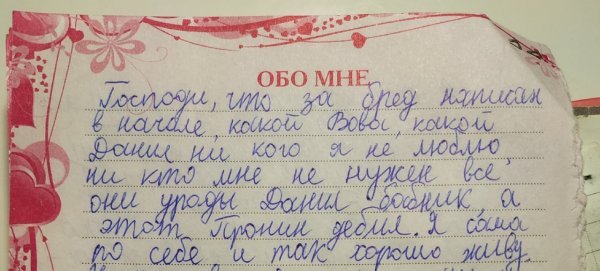 ОБО МНЕ
Господи, что за бред написан
в начале, какой Вова, какой
Данил ни кого я не люблю,
ни кто мне не нужен все
они уроды Данил бабник, а
этот Пронин дебил. Я сама
по себе и так хорошо живу.